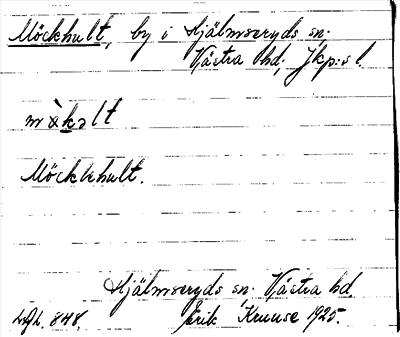 Möckhult, by i Hjälmseryds sn.
Västra hd, Jkp:s l.
mø̀kəlt
Möckhult.
Hjälmseryds sn. Västra hd.
848. Erik Kruuse 1925.